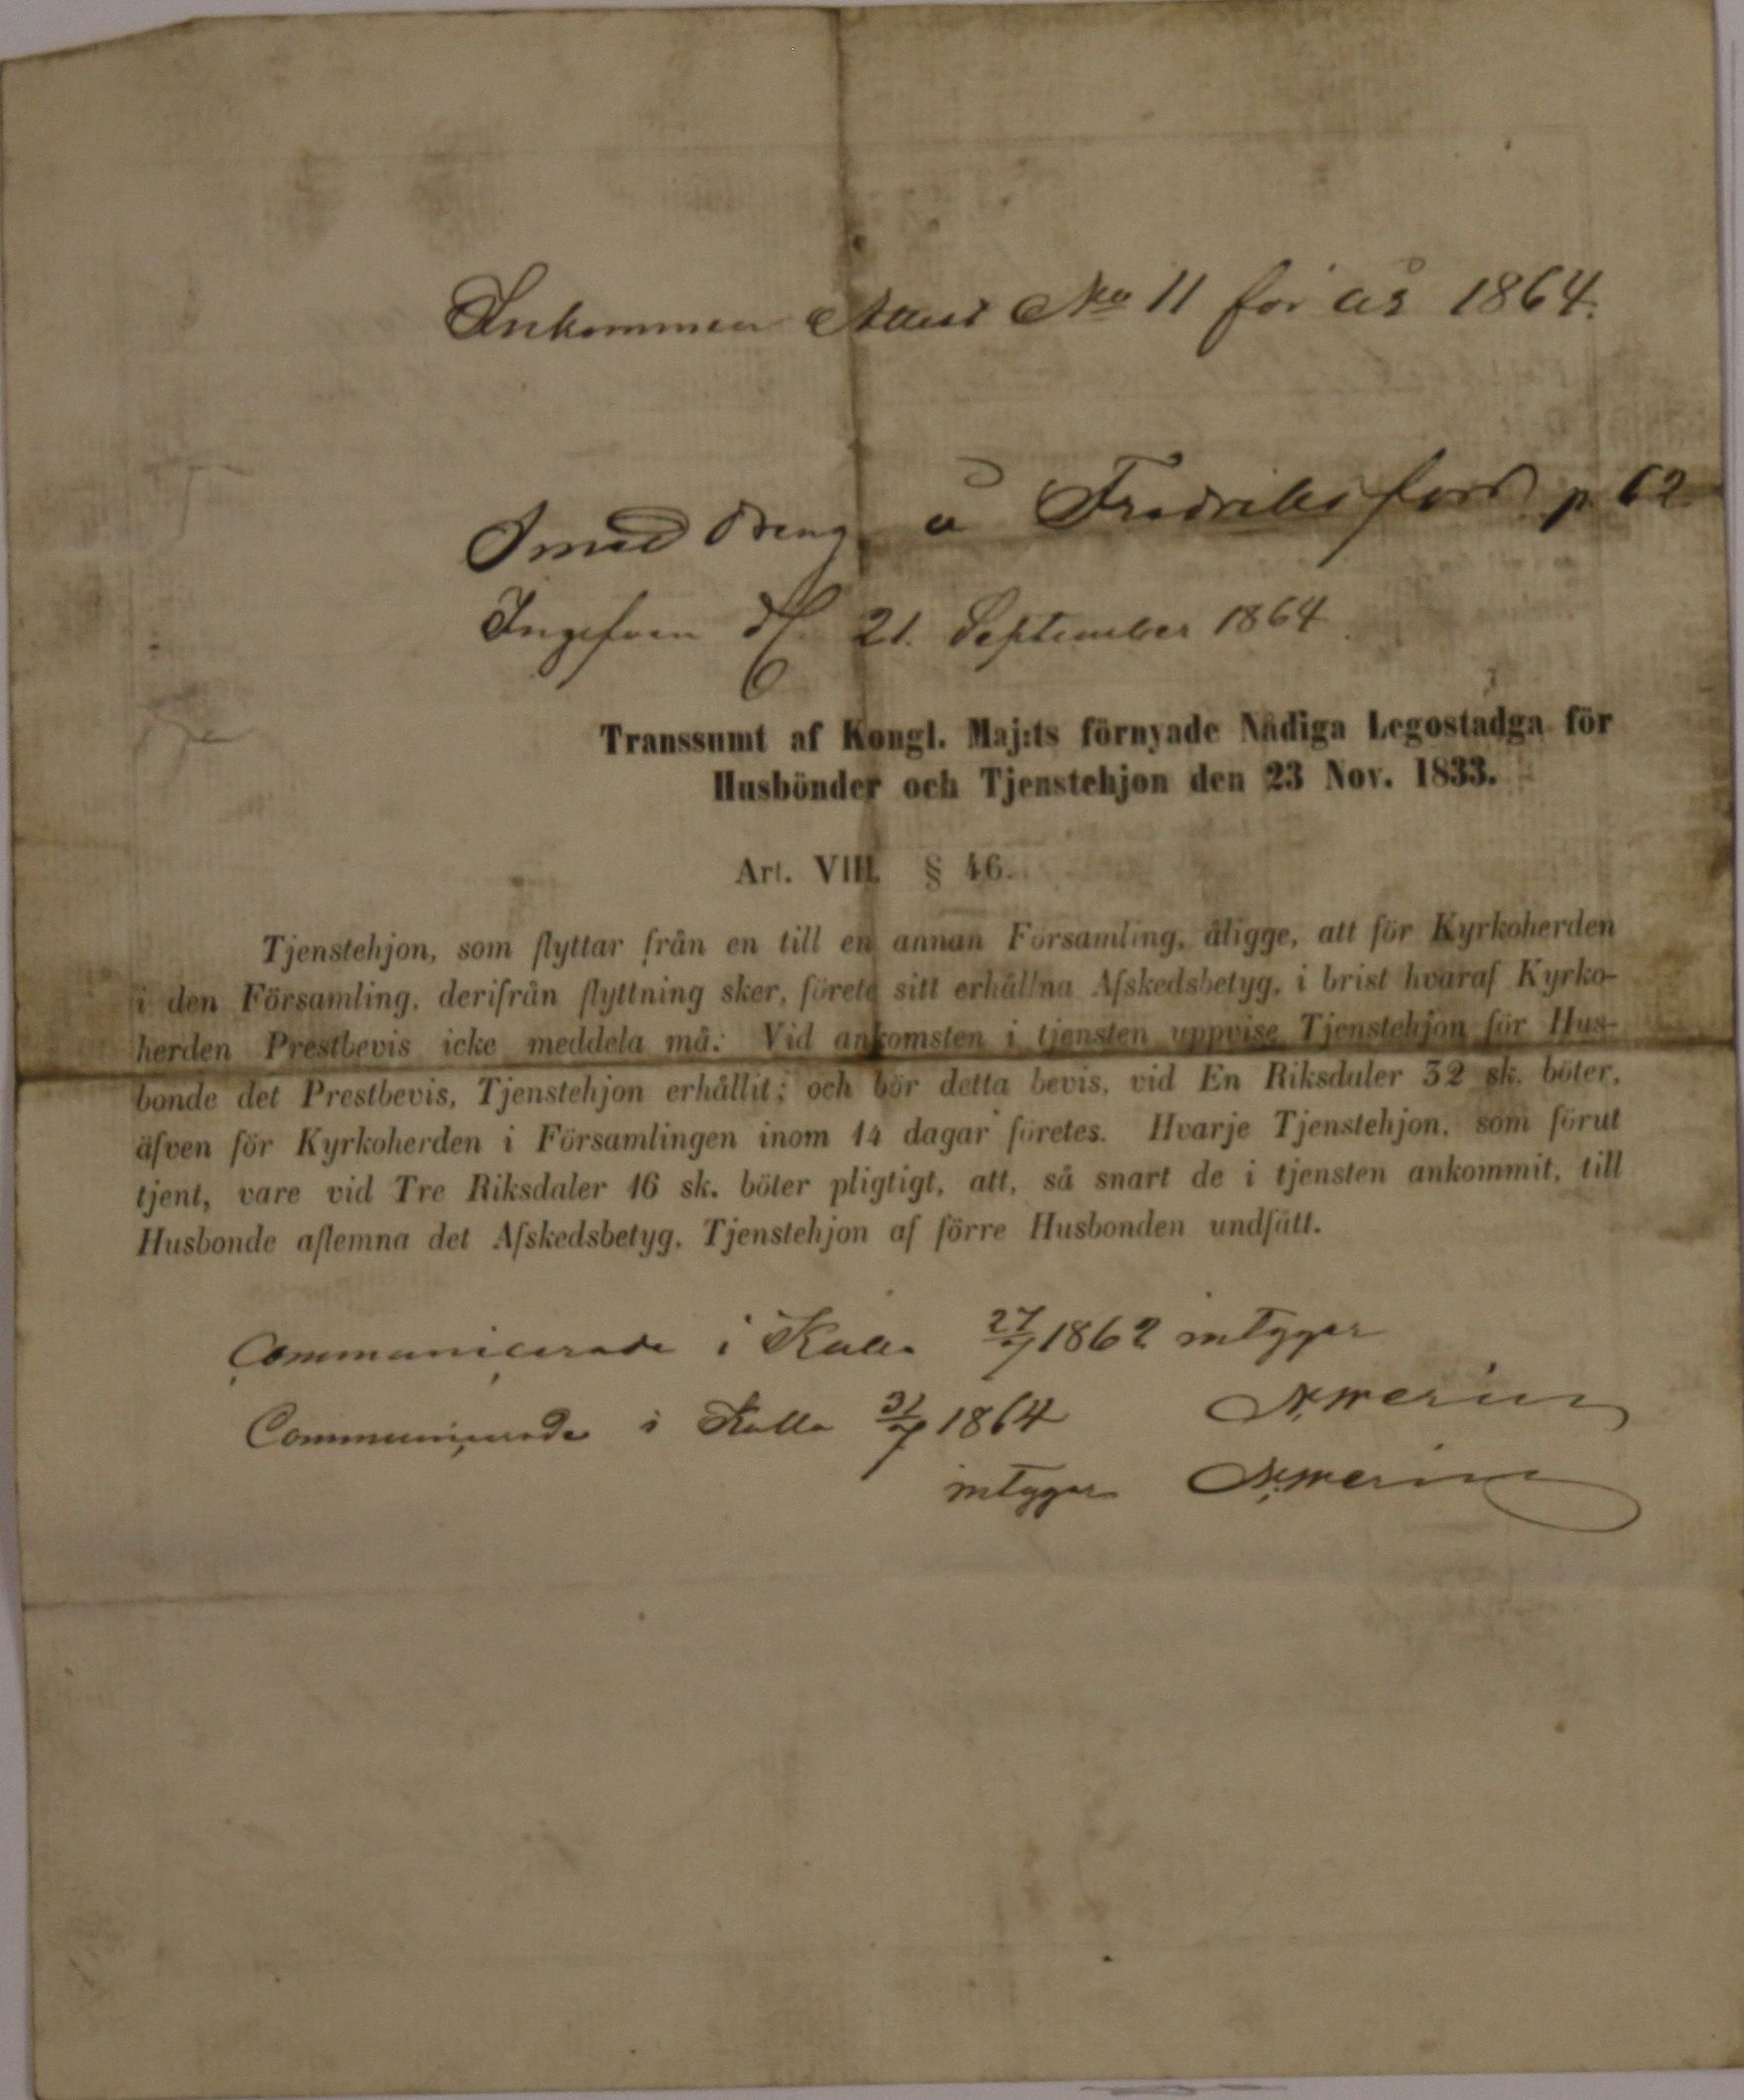 Inkommen Attest No 11 för år 1864.
Smeddreng å Fredriksfors p. 62
Ingifven d. 21. September 1864
Transsumt af Kongl. Maj:ts förnyade Nådiga Legostadga för
Husbönder och Tjenstehjon den 23 Nov. 1833.
Art. VIII. § 46.
Tjenstehjon, som flyttar från en till en annan Församling, åligge, att för Kyrkoherden
i den Församling, derifrån flyttning sker, förete sitt erhållna Afskedsbetyg, i brist hvaraf Kyrko-
herden Prestbevis icke meddela må. Vid ankomsten i tjensten uppvise Tjenstehjon för Hus-
bonde det Prestbevis, Tjenstehjon erhållit; och bör detta bevis, vid En Riksdaler 32 sk. böter,
äfven för Kyrkoherden i Församlingen inom 14 dagar företes. Hvarje Tjenstehjon, som förut
tjent, vare vid Tre Riksdaler 16 sk. böter pligtigt, att, så snart de i tjensten ankommit, till
Husbonde aflemna det Afskedsbetyg, Tjenstehjon af förre Husbonden undfått.
Communicerade i Kalla 27/7 1862 intygar
Communicerade i Kalla 31/7 1864
intygar